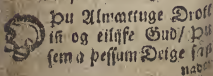 Þu Almættuge Drott
iñ og eilijfe Gud/ Þu
sem a þessum Deige